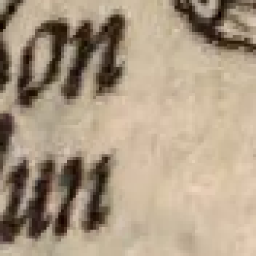 on
un